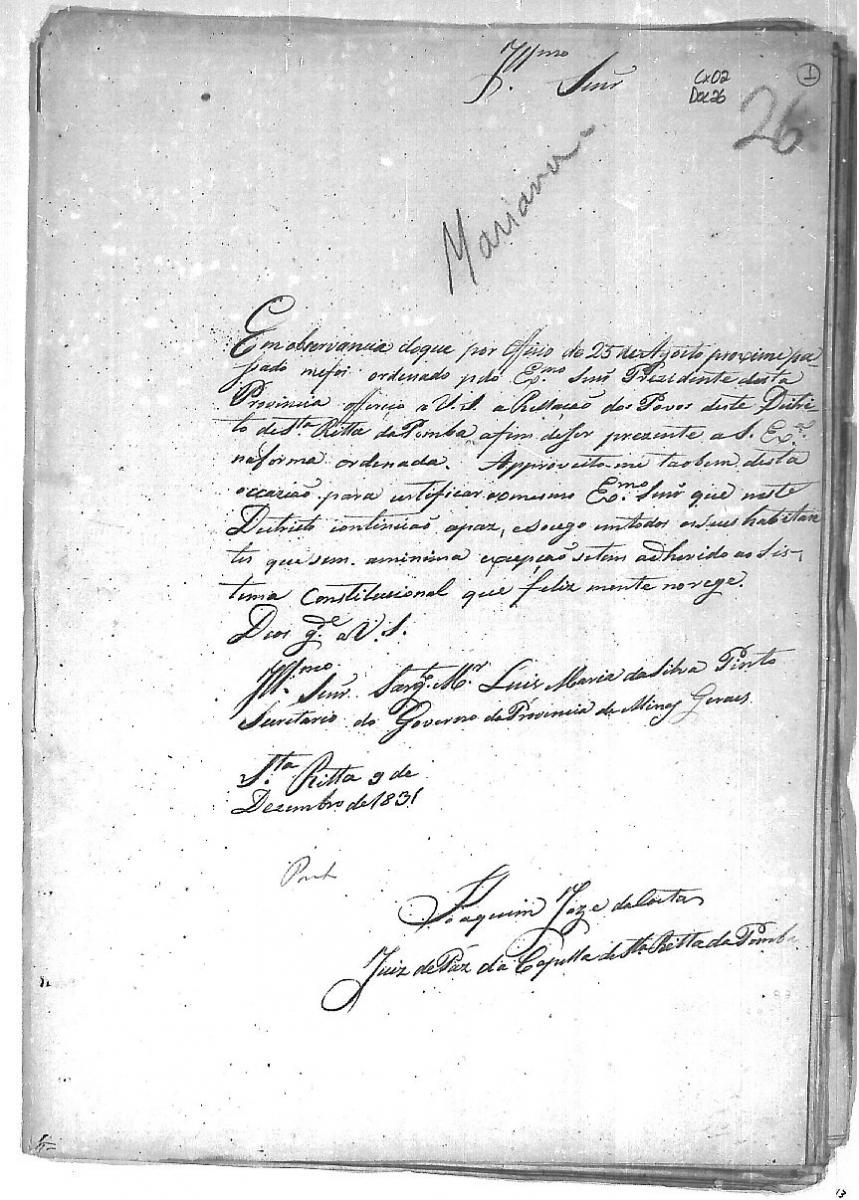 Illmo Senr
Cx02
Doc26
1
26
Mariana
Em observancia doque por Officio de 25 de Agosto proximo pa,
ssado mefoi ordenado pelo Exmo Senr Prezidente desta
Provincia officio a V.S. a Rellação dos Povos deste Distri-
to de Sta Ritta da Pomba afim deser prezente a S. Exa
naforma ordenada. Approveito-me taobem desta
occazião para certificar aomesmo Exmo Senr que neste
Destricto continuão apaz, esocego emtodos osseus habitan
tes que sem aminima excepção setem adherido ao Sis,
tema Constitucional que feliz mente nos rege.
Deos gde a V.S.
Illmo Senr Sargto Mr Luiz Maria da Silva Pinto
Secritario do Governo da Provincia de Minas Geraes
Sta Ritta 9 de
Dezembro de 1831
Joaquim Joze da Costa
Juiz de Páz da Capella de Sta Ritta da Pomba
13